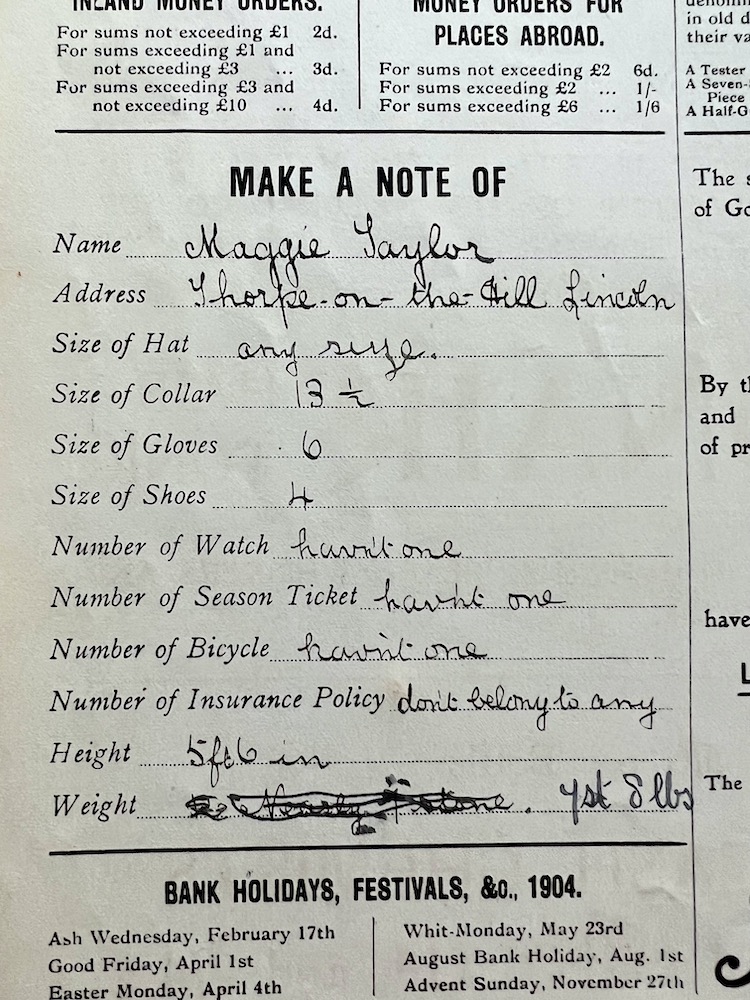 INLAND MONEY ORDERS.
For sums not exceeding £1 2d.
For sums exceeding £1 and
not exceeding £3 ... 3d.
For sums exceeding £3 and
not exceeding £10 ... 4d.
MONEY ORDERS FOR
PLACES ABROAD.
For sums not exceeding £2 6d.
For sums exceeding £2 ... 1/-
For sums exceeding £6 ... 1/6
in old
their
A Tester
A Seven-
Piece
A Half-G
MAKE A NOTE OF
Name Maggie Taylor
Address Thorpe-on-the-Hill Lincoln
Size of Hat any size.
Size of Collar 13 ½
Size of Gloves 6
Size of Shoes 4
Number of Watch havn't one
Number of Season Ticket havnt one
Number of Bicycle havn't one
Number of Insurance Policy don't belong to any
Height 5ft 6 in
Weight Nearly stone. 7st 8lbs
The
of
By
and
of
have
The
BANK HOLIDAYS, FESTIVALS, &c., 1904.
Ash Wednesday, February 17th
Good Friday, April 1st
Easter Monday, April 4th
Whit-Monday, May 23rd
August Bank Holiday, Aug. 1st
Advent Sunday, November 27th